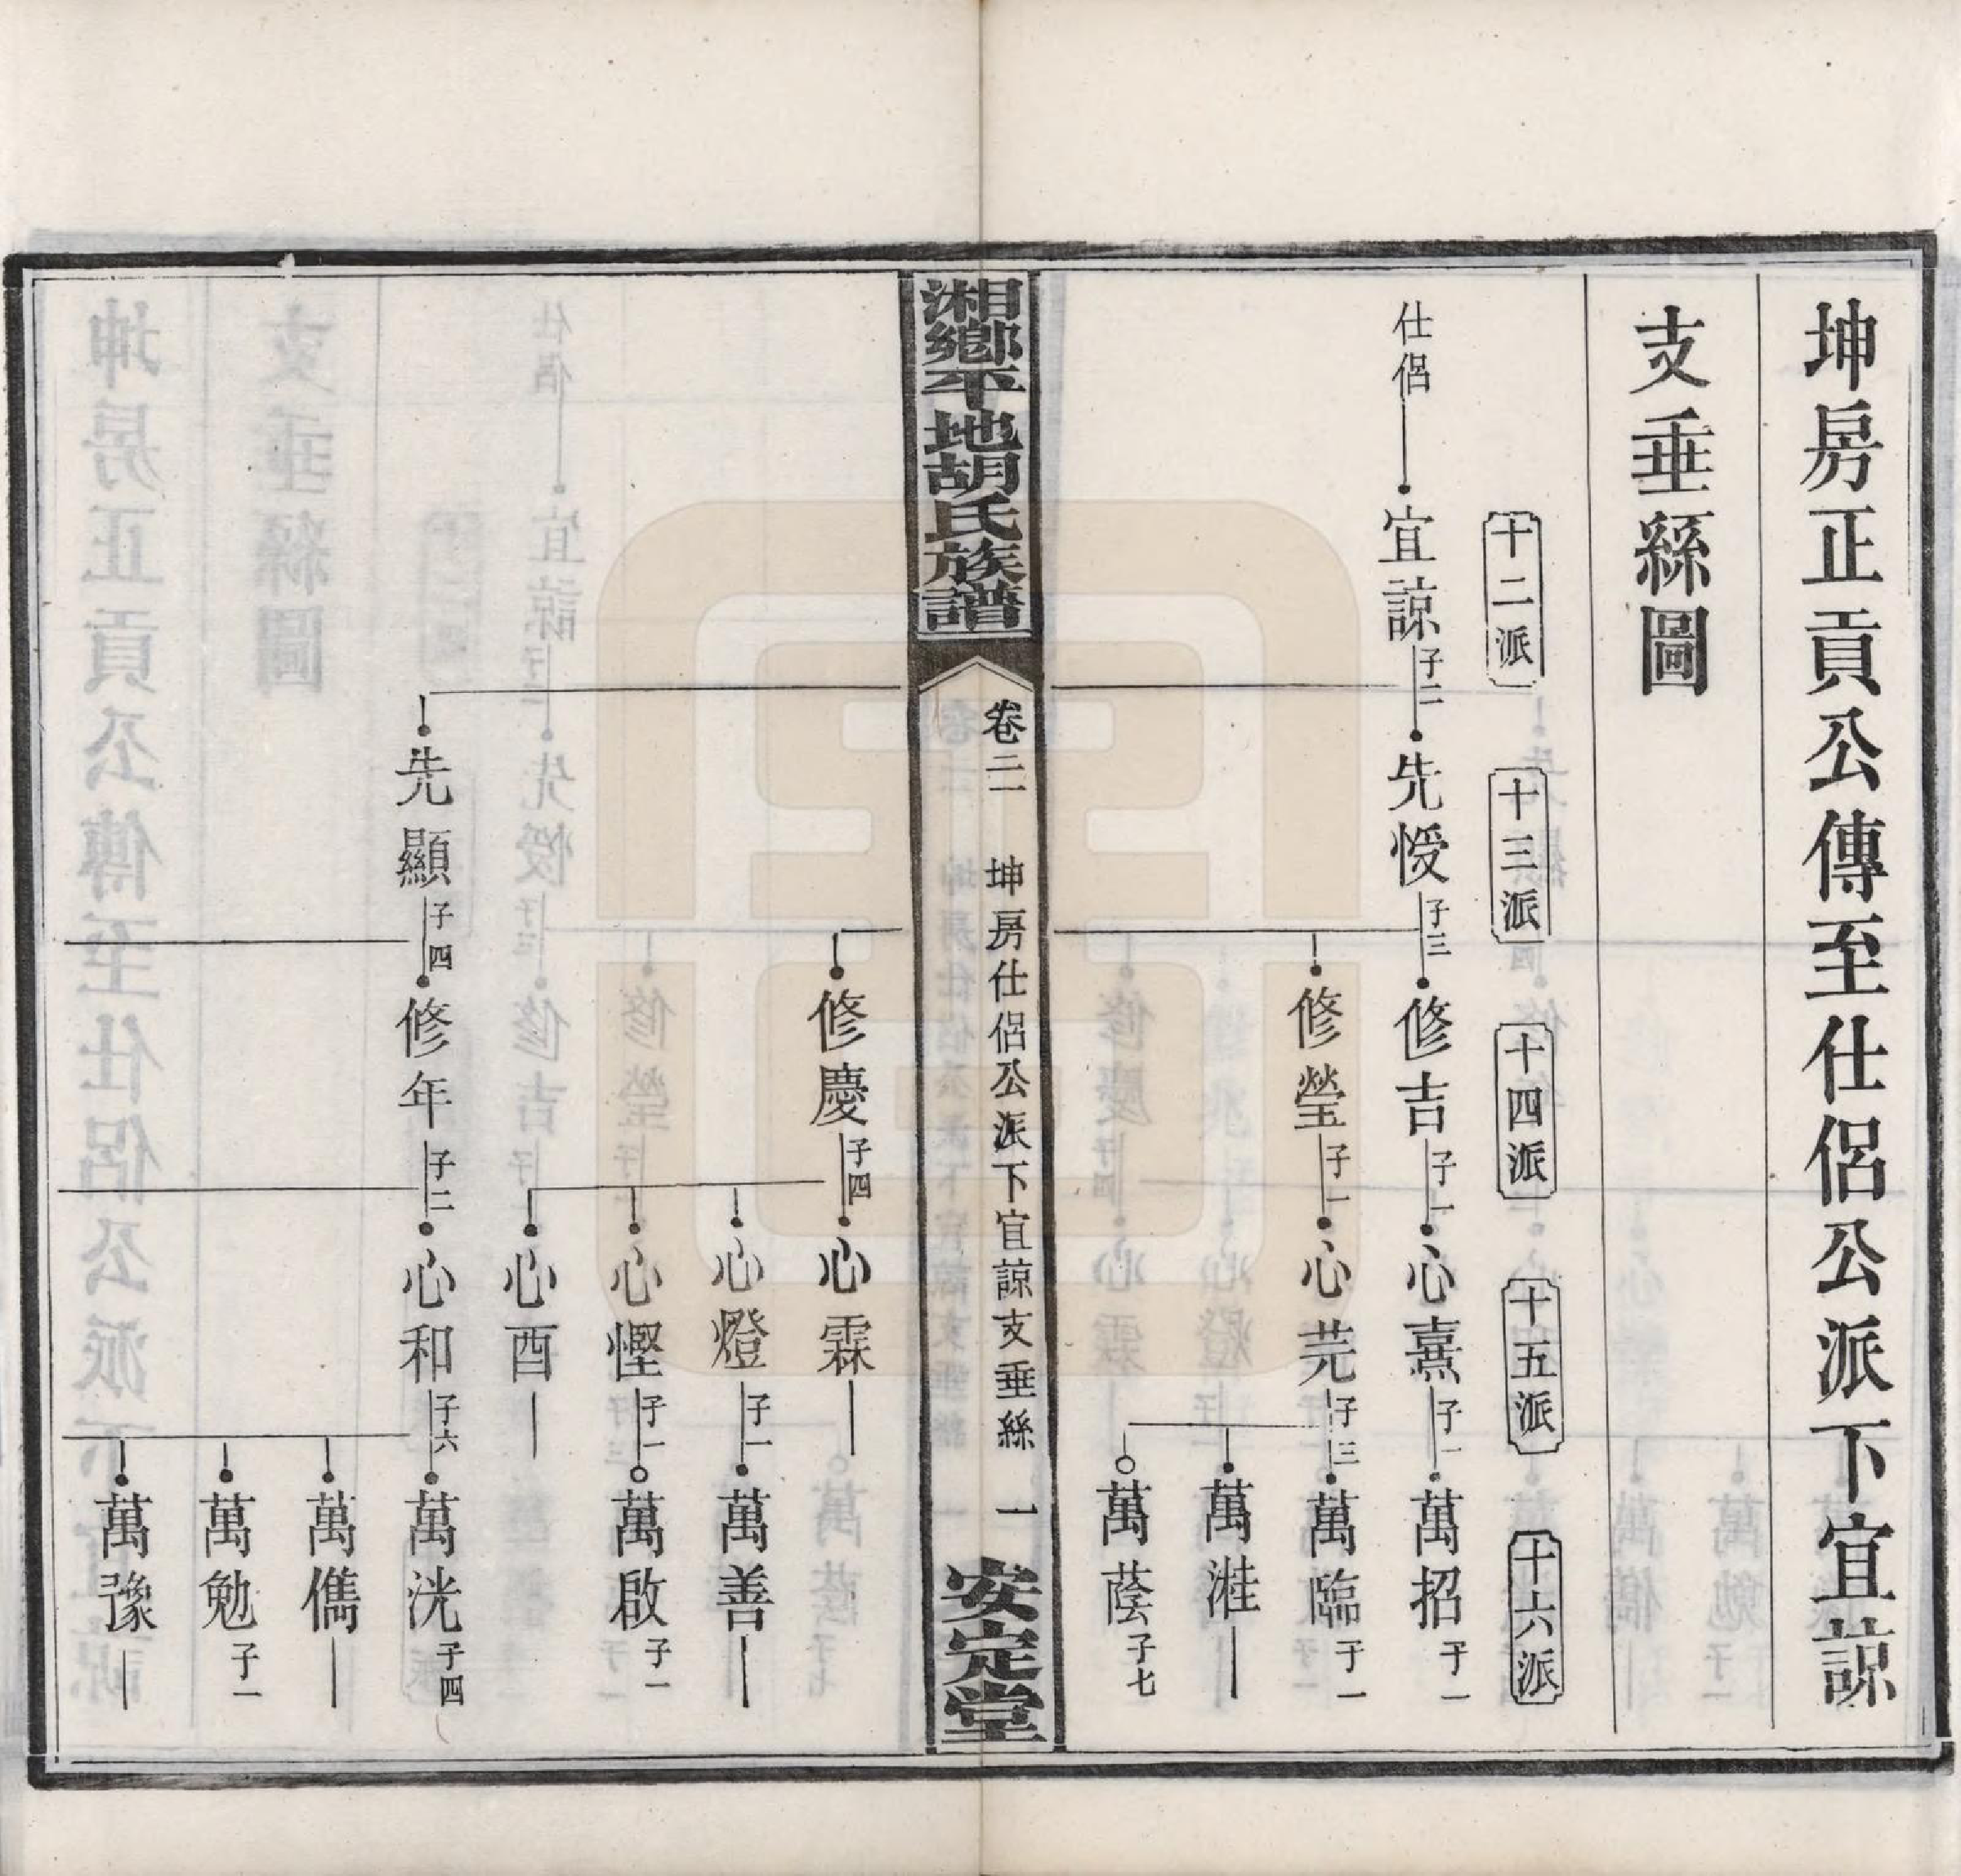 坤房正貢公傳至仕侶公派下宜諒
支垂絲圖
十二派
十三派
十四派
十五派
十六派
仕侶
宜諒子二
先慢子三
修吉子一
心熹子一
萬招子一
修瑩子一
心芫子三
萬臨子一
萬溎
萬蔭子七
湘鄉平地胡氏族譜
卷二
坤房仕侶公派下宜諒支垂絲
一
安定堂
修慶子四
心霖
心燈子一
萬善
心慳子一
萬啟子一
心酉
先顯子四
修年子二
心和子六
萬洸子四
萬儁
萬勉子一
萬豫